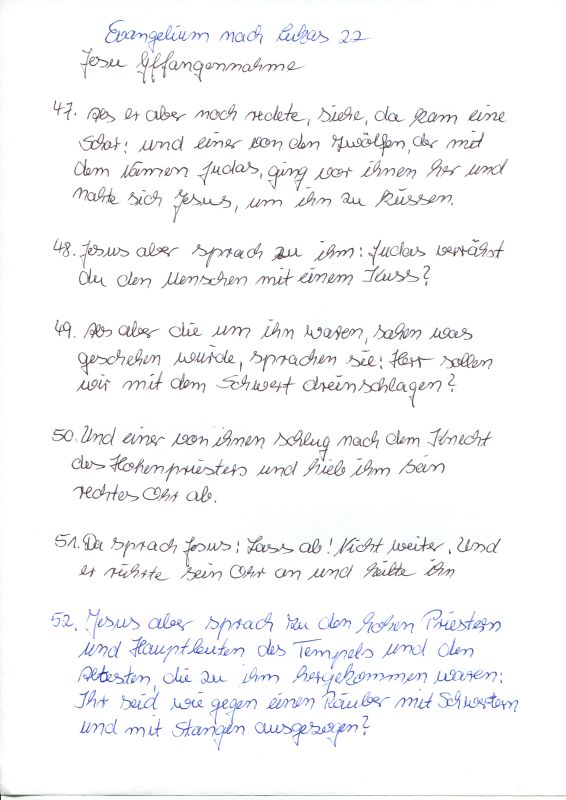 Evangelium nach Lukas 22
Jesu Gffangennahme
47. Als er aber noch redete, siehe, da kam eine
Schar; und einer von den Zwölfen, der mit
dem Namen Judas, ging vor ihnen her und
nahte sich Jesus, um ihn zu küssen.
48. Jesus aber sprach zu ihm: Judas verrähst
du den Menschen mit einem Kuss?
49. Als aber die um ihn waren, sahen was
geschehen würde, sprachen sie: Herr sollen
wir mit dem Schwert dreinschlagen?
50. Und einer von ihnen schlug nach dem Knecht
des Hohenpriesters und hieb ihm sein
rechtes Ohr ab.
51. Da sprach Jesus: Lass ab! Nicht weiter. Und
er rührte sein Ohr an und heilte ihn
52. Jesus aber sprach zu den hohen Priestern
und Hauptleuten des Tempels und den
Ältesten, die zu ihm hergekommen waren:
Ihr seid wie gegen einen Räuber mit Schwertern
und mit Stangen ausgezogen?